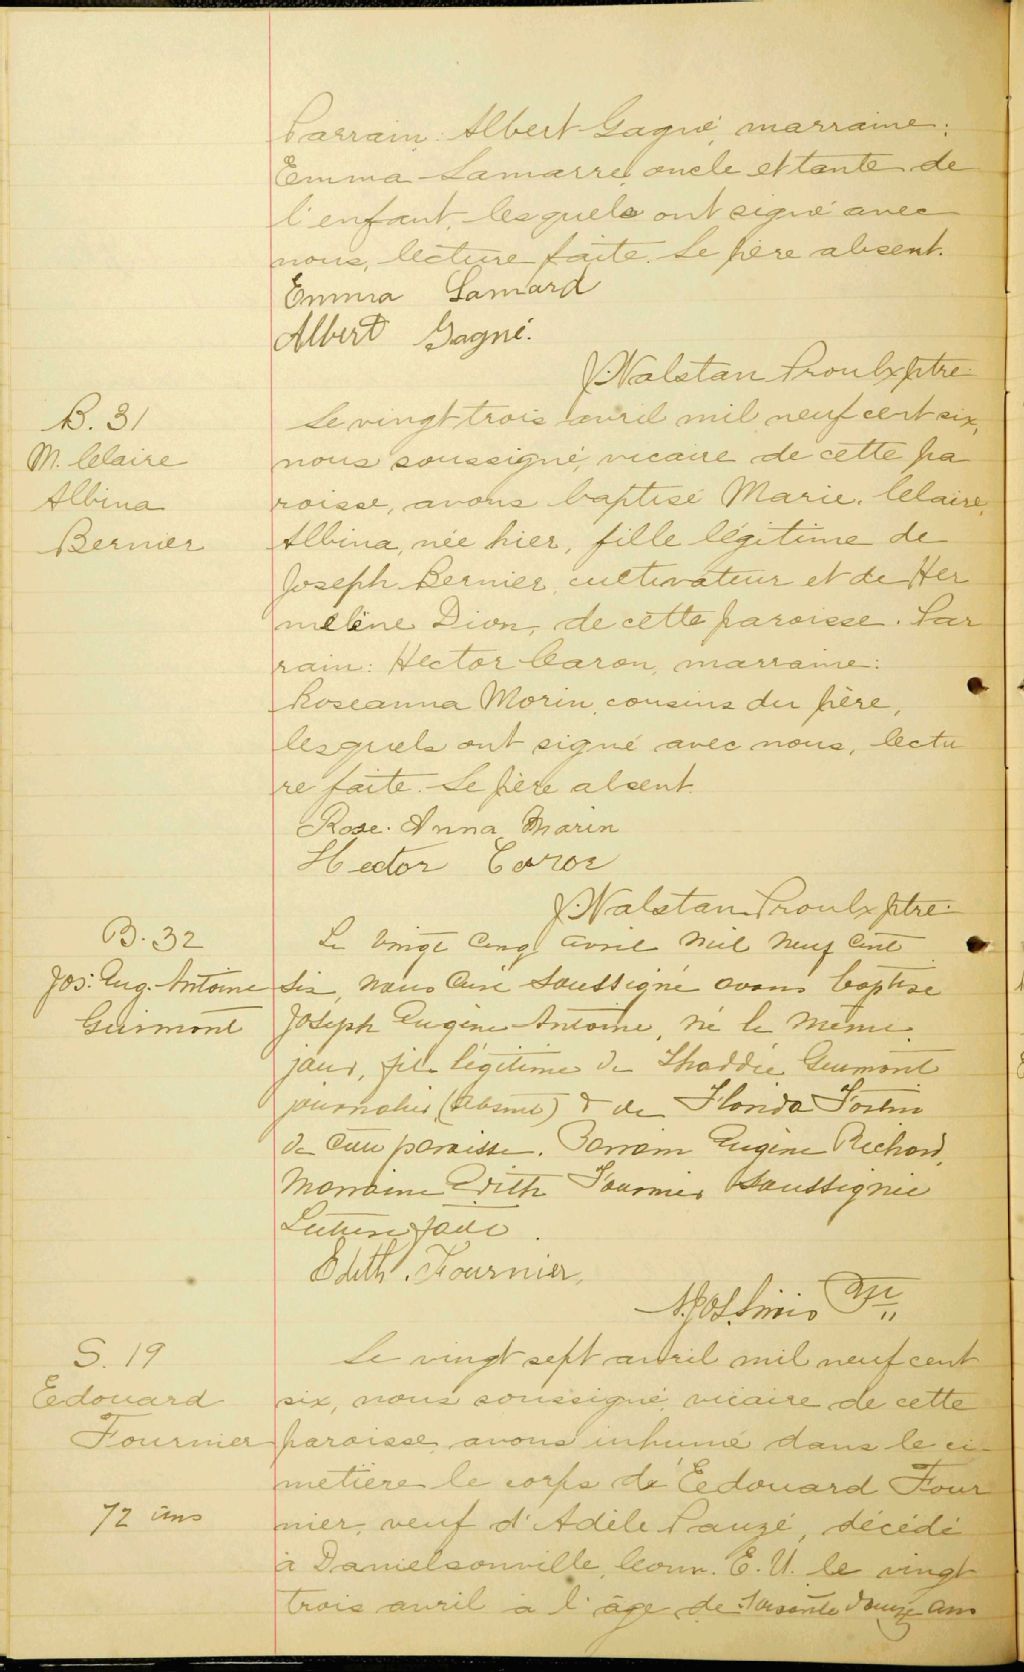 Parrain: Albert Gagné, marraine:
Emma Lamarre, oncle et tante de
l'enfant, lesquels ont signé avec
nous, lecture faite. Le père absent.
Emma Lamard
Albert Gagné.
J. Nalstan Proulx ptre.
B. 31
M. Claire
Albina
Bernier
Le vingt trois avril mil neuf cent six,
nous soussigné, vicaire de cette pa
roisse, avons baptisé Marie, Claire,
Albina, née hier, fille légitime de
Joseph Bernier, cultivateur et de Her
meline Dion, de cette paroisse. Par
rain: Hector Caron, marraine:
Roseanna Morin, cousins du père,
lesquels ont signé avec nous, lectu
re faite. Le père absent.
Rose. Anna Morin
Hector Caron
J. Nalstan Proulx ptre.
B. 32
Jos: Eug. Antoine
Guimont
Le vingt cinq avril mil neuf cent
six, nous curé soussigné avons baptisé
Joseph Eugène Antoine, né le même
jour, fils légitime de Thaddée Guimont
journalier (absent) & de Florida Fortin
de cette paroisse. Parrain Eugène Richard,
Marraine Edith Fournier soussignée
Lecture faite.
Edith. Fournier,
Ptre
S. 19
Edouard
Fournier
72 ans
Le vingt sept avril mil neuf cent
six, nous soussigné, vicaire de cette
paroisse avons inhumé dans le ci-
metière le corps d'Edouard Four
nier, veuf d'Adèle Pauzé, décédé
à Danielsonville, Conn. E. U. le vingt
trois avril à l'âge de soixante douze ans